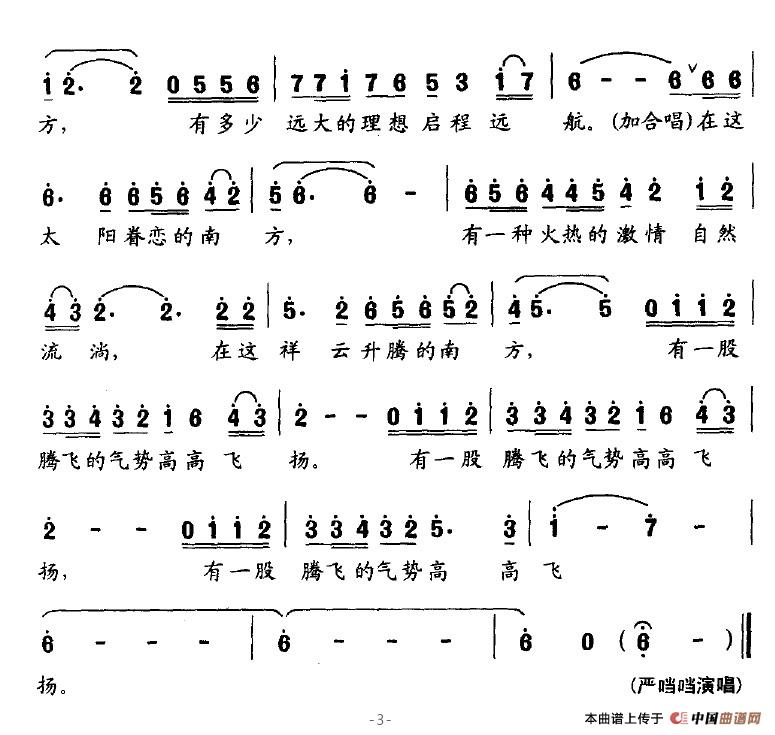 i 2· 2 0 5 5 6 | 7 7 i 7 6 5 3 i 7 | 6 - - 6 6 6 |
方， 有多少 远大的理想启程远 航。(加合唱)在这
6· 6 6 5 6 4 2 | 5 6· 6 - | 6 5 6 4 4 5 4 2 1 2 |
太 阳眷恋的南 方， 有一种火热的激情 自然
4 3 2· 2· 2 2 | 5· 2 6 5 6 5 2 | 4 5· 5 0 1 1 2 |
流 淌， 在这 祥 云升腾的南 方， 有一股
3 3 4 3 2 1 6 4 3 | 2 - - 0 1 1 2 | 3 3 4 3 2 1 6 4 3 |
腾飞的气势高高飞 扬。 有一股 腾飞的气势高高飞
2 - - 0 1 1 2 | 3 3 4 3 2 5· 3 | 1 - 7 - |
扬， 有一股 腾飞的气势高 高飞
6 - - - | 6 - - - | 6 6 0 (6 -) ‖
扬。 (严当当演唱)
-3-
本曲谱上传于 中国曲谱网